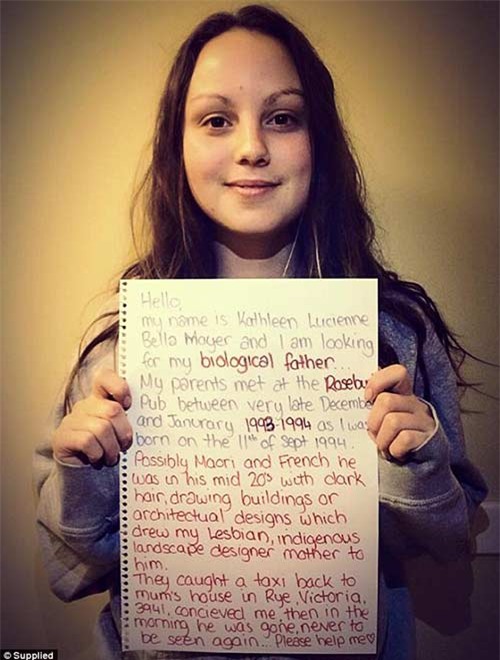 Hello,
my name is Kathleen Lucienne
Bella Mayer and I am looking
for my biological father...
My parents met at the Rosebu
Pub between very late Decembe
and Janurary 1993-1994 as I was
born on the 11th of Sept 1994.
Possibly Maori and French he
was in his mid 20's with dark
hair, drawing buildings or
architectual designs which
drew my Lesbian, indigenous
landscape designer mother to
him.
They caught a taxi back to
mum's house in Rye, Victoria,
3941, concieved me then in the
morning he was gone, never to
be seen again... Please help me♡
© Supplied